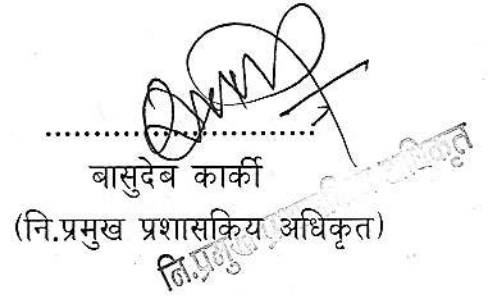 ....................................
बासुदेब कार्की
(नि.प्रमुख प्रशासकिय अधिकृत)
नि.प्रमुख प्रशासकीय अधिकृत